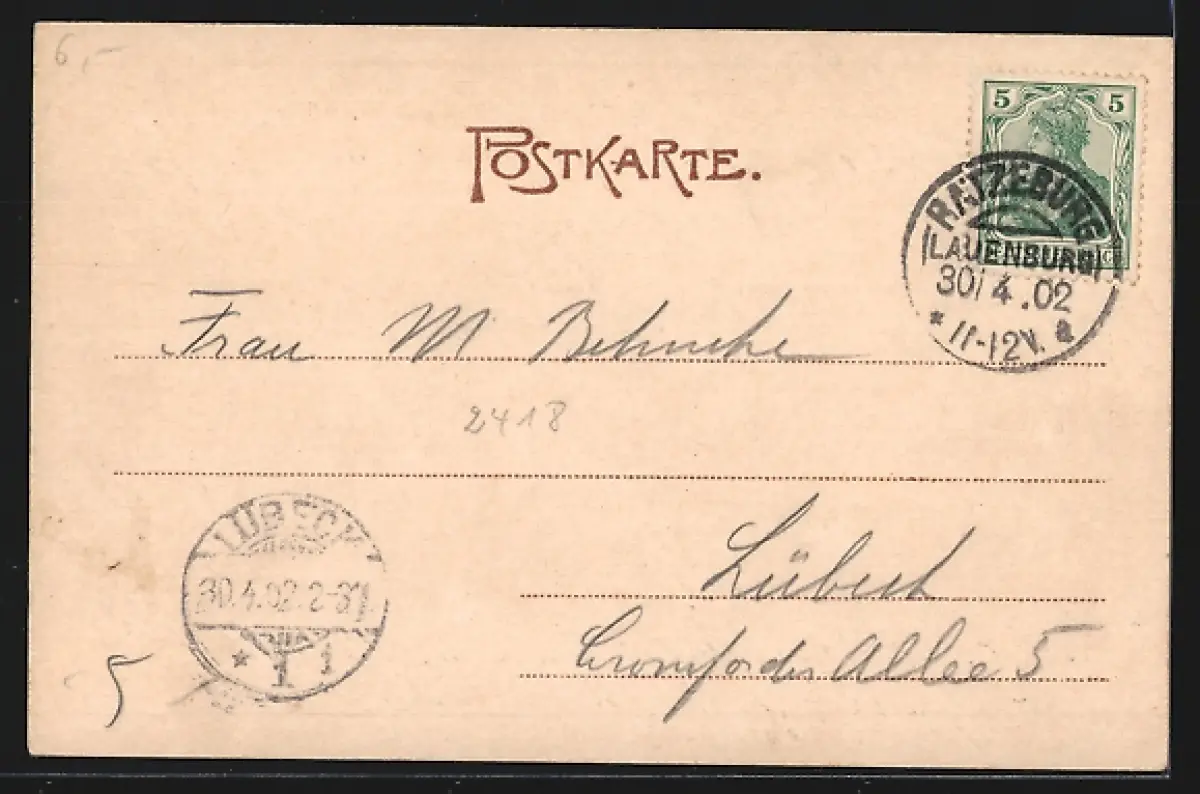 6,-
POSTKARTE.
5 5
RATZEBURG
(LAUENBURG)
30/4.02
* 11-12V. a
Frau M Behncke
2418
LÜBECK
30.4.02.2-3N.
* 1 1
Lübeck
Cronsforder Allee 5
5